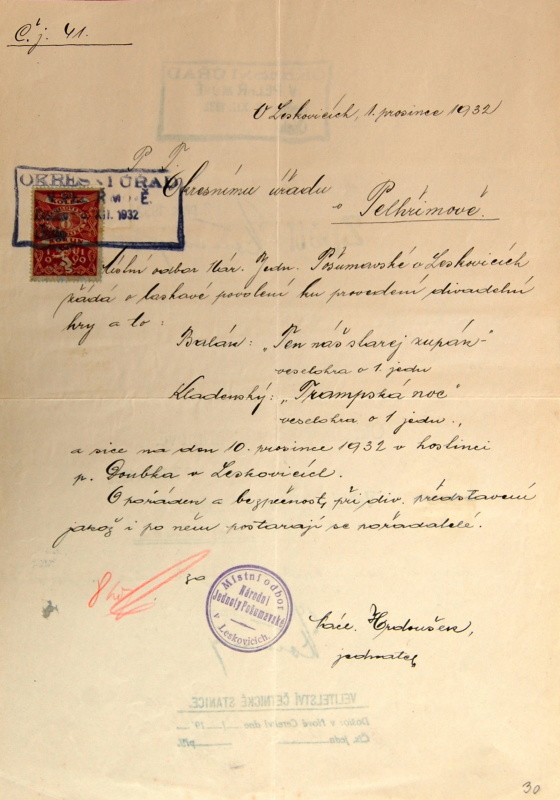 Č. j. 41.
V Leskovicích, 1. prosince 1932
P. T.
OKRESNÍ ÚŘAD
XII. 1932
Okresnímu úřadu
v Pelhřimově.
Místní odbor Nár. Jedn. Pošumavské v Leskovicích
žádá o laskavé povolení ku provedení divadelní
hry a to:
Balán: „Ten náš starej župán“
veselohra o 1. jedn.
Kladenský: „Trampská noc“
veselohra o 1 jedn.,
a sice na den 10. prosince 1932 v hostinci
p. Doubka v Leskovicích.
O pořádek a bezpečnost, při div. představení
jakož i po něm postarají se pořadatelé.
za
Místní odbor
Národní
Jednoty Pošumavské
v Leskovicích.
Hrdoušek,
jednatel
VELITELSTVÍ ČETNICKÉ STANICE.
30